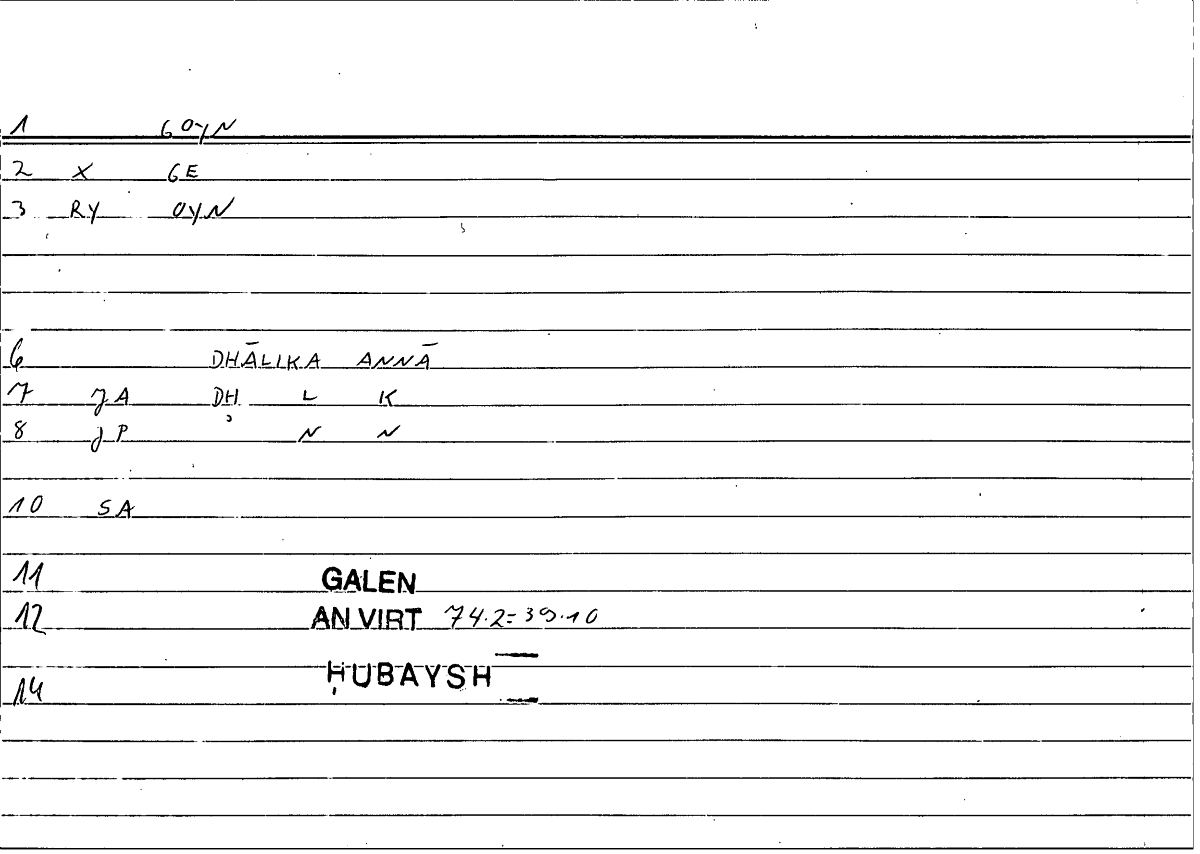 1 GOYN
2 X GE
3 RY OYN
6 DHĀLIKA ANNĀ
7 JA DH L K
8 JP N N
10 SA
11 GALEN
12 AN VIRT 74.2=39.10
ḤUBAYSH
14